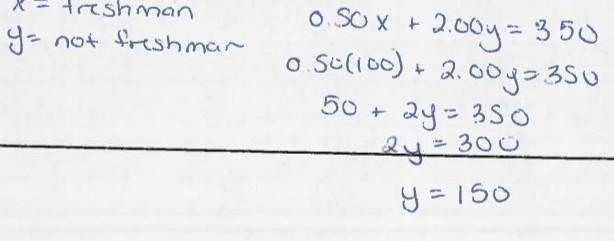 x = freshman
y= not freshman
0.50x + 2.00y = 350
0.50(100) + 2.00y=350
50 + 2y = 350
2y = 300
y = 150